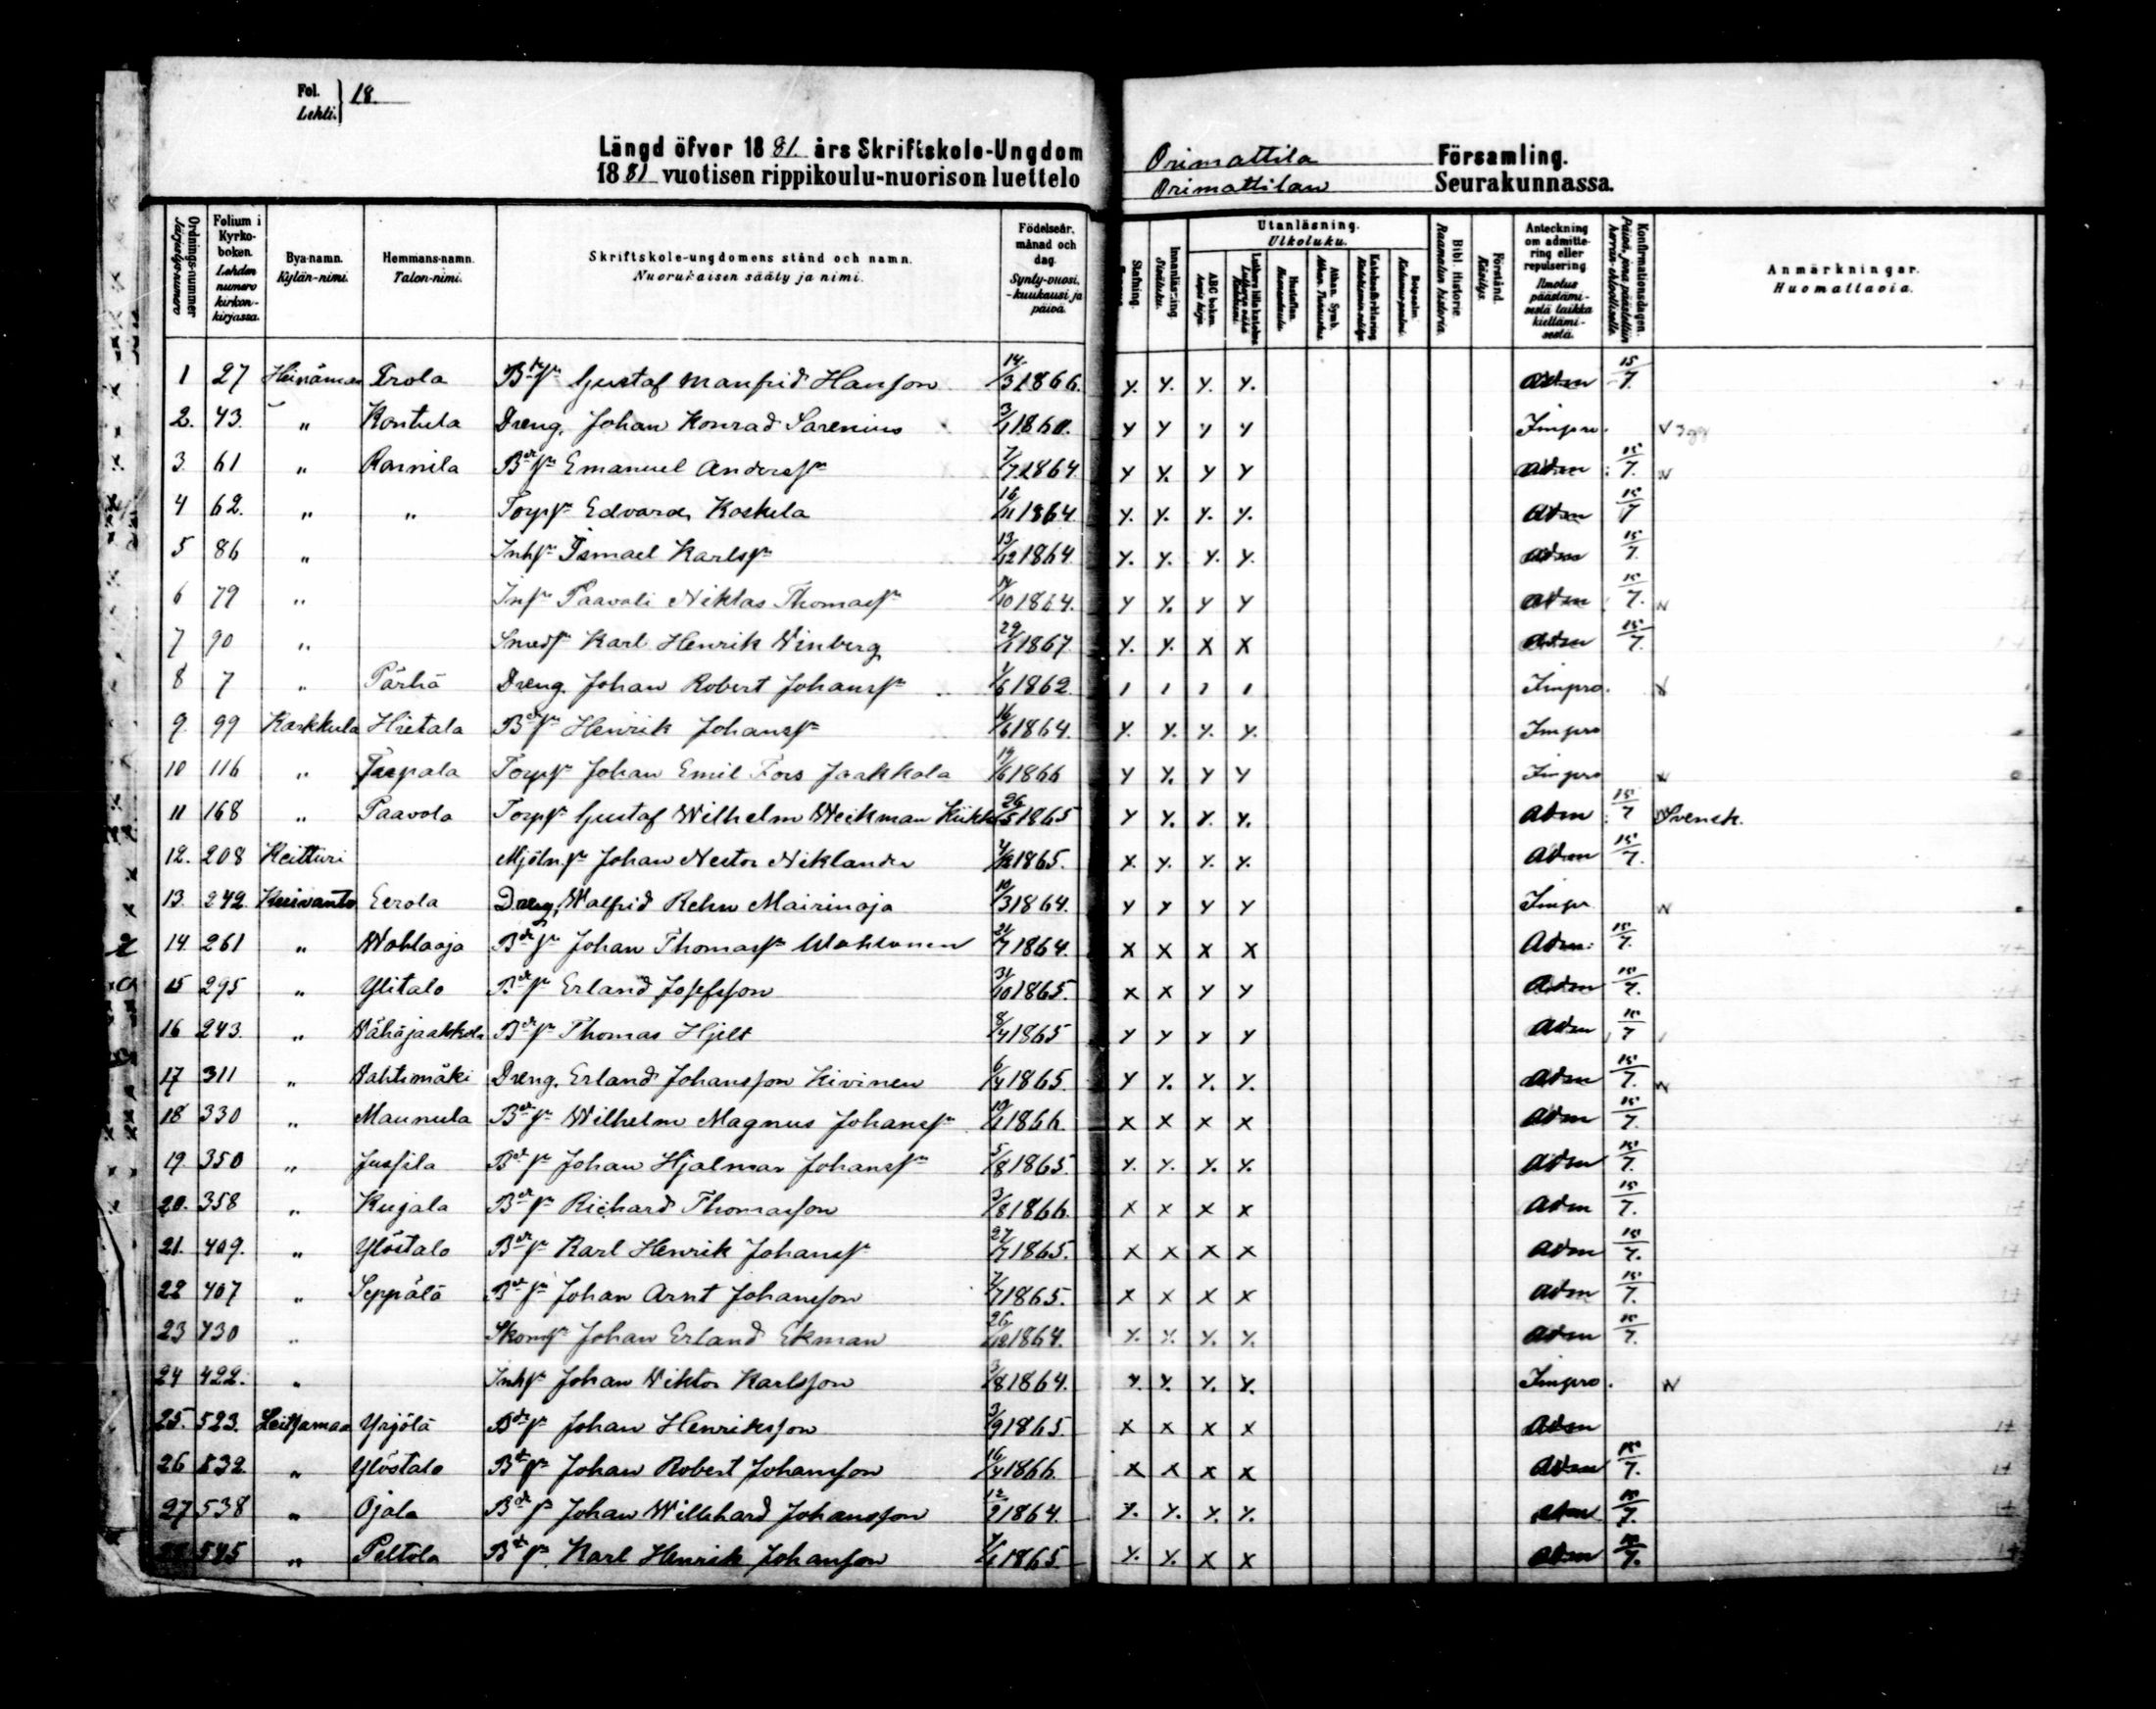 Fol. Lehti. } 18.
Längd öfver 1881. års Skriftskole-Ungdom Orimattila Församling.
1881 vuotisen rippikoulu-nuorison luettelo Orimattilan Seurakunnassa.
Ordnings-nummer Järjestys-numero | Folium i Kyrko-boken. Lehden numero kirkon-kirjassa. | Bya-namn. Kylän-nimi. | Hemmans-namn. Talon-nimi. | Skriftskole-ungdomens stånd och namn. Nuorukaisen sääty ja nimi. | Födelseår, månad och dag. Synty-vuosi, -kuukausi ja päivä. | Stafning. | Innanläsning. Sisäluku. | Utanläsning. Ulkoluku. | ABC boken. Aapis kirja. | Luthers lilla kateches | Hustaflan. Huoneentaulu. | Athan. Symb. Athan. Tunnustus. | Kateches-förklaring | Botpsalm. Katumuspsalmi. | Bibl. Historie. Raamatun historia. | Förstånd. Käsitys. | Anteckning om admittering eller repulsering Ilmotus päästämisestä taikka kieltämisestä. | Konfirmationsdagen. Päivä, jona päästettiin herran-ehtoolliselle. | Anmärkningar. Huomattavia.
1 27 Heinämaa Erola Bdsn Gustaf Manfrid Hansson 14/3 1866. y. y. y. y. adm 15/7.
2. 43. " Kontula Dreng. Johan Konrad Sarenius 3/1 1860. y y y y Impro.
3. 61 " Ronnila Bdesn Emanuel Anderssn 7/7 1864. y y. y y adm 15/7.
4 62. " " Torpsn Edvard Koskela 16/11 1864. y. y. y. y. adm 15/7
5 86 " Inhsn Ismael Karlssn 13/12 1864. y. y. y. y. adm 15/7.
6 79 " Insn Paavali Niklas Thomassn 14/10 1864. y y. y y adm 15/7.
7 90 " Smedsn Karl Henrik Winberg 29/1 1867. y. y. x x adm 15/7.
8 7 " Pärhä Dreng. Johan Robert Johanssn 1/6 1862. Impro.
9. 99 Karkkula Hietala Bdesn Henrik Johanssn 16/6 1864. y. y. y. y. Impro
10 116 " Torpsn Johan Emil Fors Jaakkola 19/6 1866 y y. y y Impro
11 168 " Paavola Torpsn Gustaf Wilhelm Weckman 26/5 1865 y y. y. y. adm 15/7 Svensk.
12. 208 Keituri Mjölnsn Johan Nestor Niklander 4/12 1865. x. y. y. y. adm 15/7.
13. 242. Kuivanto Eerola Dreng, Walfrid Rehn Mairinoja 10/3 1864. y y y y Impr
14. 261 " Wohlaoja Bdesn Johan Thomassn 21/7 1864. x x x x Adm. 15/7.
15 295 " Ylitalo Bdesn Erland Josefsson 31/10 1865. x x y y adm 15/7.
16 243. " Vähäjaakkola Bdesn Thomas Hjelt 8/4 1865 y y y y adm 15/7
17 311 " Vahtimäki Dreng. Erland Johansson Kivinen 6/4 1865. y y. y. y. adm 15/7.
18 330 " Maunula Bdesn Wilhelm Magnus Johanssn 10/1 1866. x x x x adm 15/7.
19. 350 " Jussila Bdesn Johan Hjalmar Johanssn 5/8 1865. y. y. y. y. adm 15/7.
20. 358 " Kujala Bdesn Richard Thomasson 3/8 1866. x x x x adm 15/7.
21. 409. " Ylöstalo Bdesn Karl Henrik Johanssn 27/7 1865. x x x x adm 15/7.
22 407 " Seppälä Bdesn Johan Arnt Johansson 2/7 1865. x x x x adm 15/7.
23 430 " Skomsn Johan Erland Ekman 26/12 1864. y. y. y. y. adm 15/7.
24 422. " Inhsn Johan Viktor Karlsson 3/8 1864. y. y. y. y. Impro.
25. 523. Leitsamaa Yrjölä Bdesn Johan Henriksson 3/9 1865. x x x x adm
26 532. " Ylöstalo Bdesn Johan Robert Johansson 16/4 1866. x x x x adm 15/7.
27 538 " Ojala Bdesn Johan Willehard Johansson 12/2 1864. y. y. y. y. adm 15/7.
28 545 " Peltola Bdesn Karl Henrik Johansson 1865 y. y. x x adm 15/7.